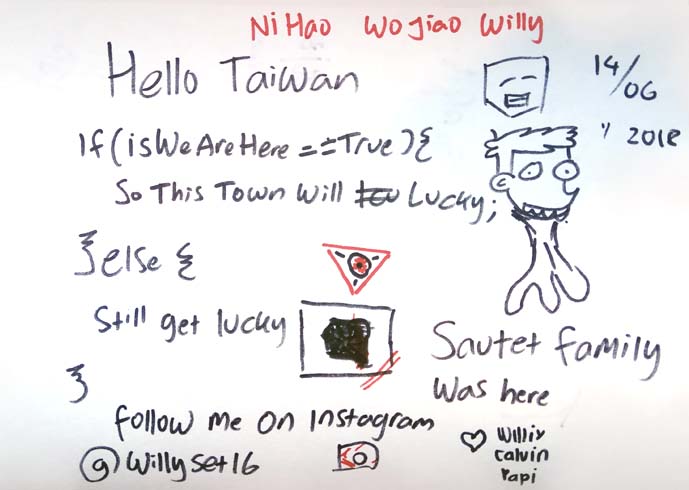 NiHao Wo Jiao Willy
Hello Taiwan
14/06
2018
If (isWeAreHere ==True){
So This Town Will Lucky;
}else {
Still get lucky
}
Sautet family
Was here
follow me on Instagram
@Willyset16
calvin